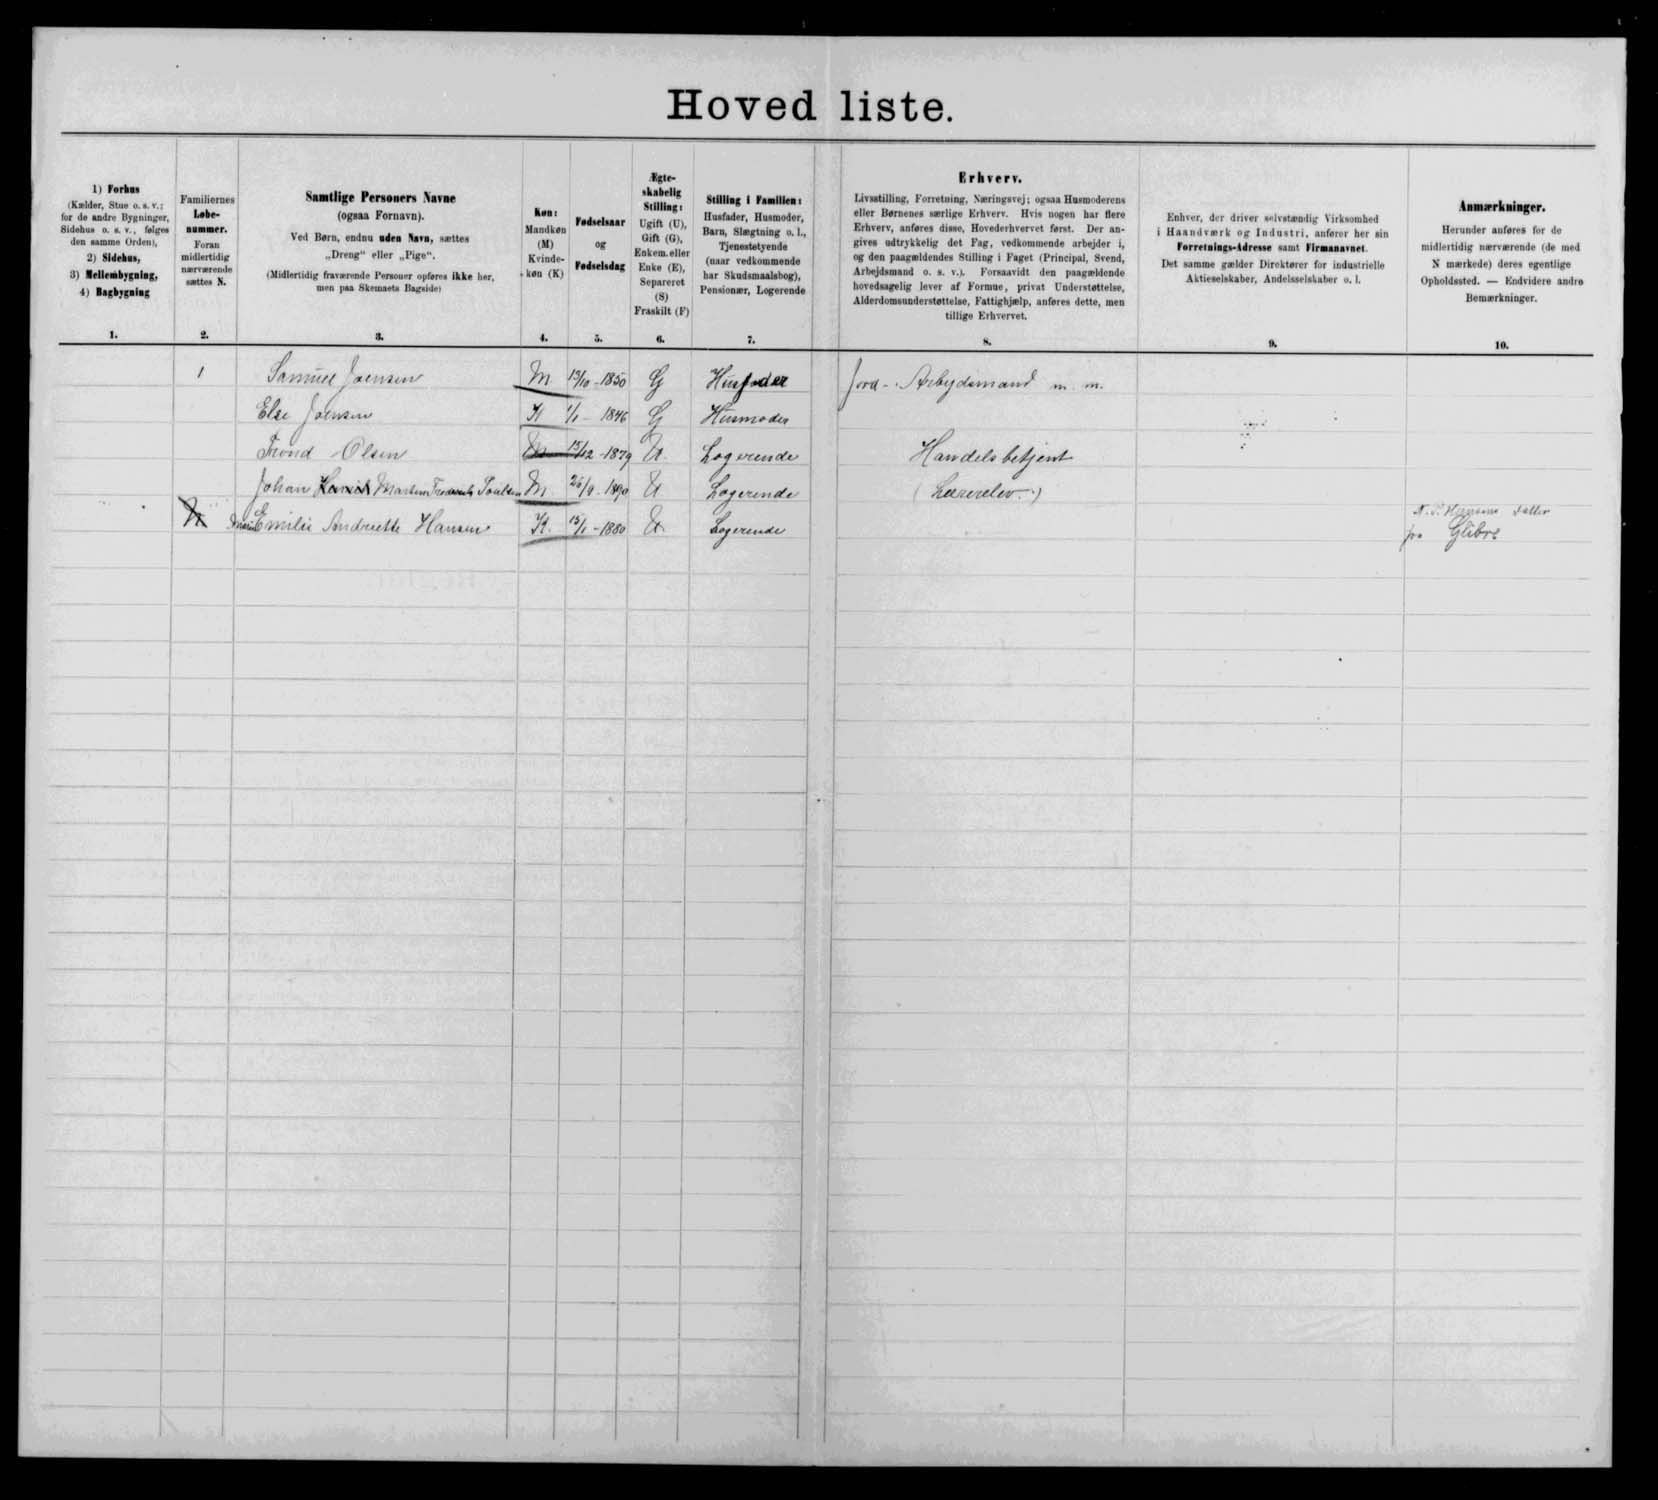 Hoved liste.
1) Forhus
(Kælder, Stue o. s. v.;
for de andre Bygninger,
Sidehus o. s. v., følges
den samme Orden),
2) Sidehus,
3) Mellembygning,
4) Bagbygning
1.
Familiernes
Løbe-
nummer.
Foran
midlertidig
nærværende
sættes N.
2.
Samtlige Personers Navne
(ogsaa Fornavn).
Ved Børn, endnu uden Navn, sættes
„Dreng“ eller „Pige“.
(Midlertidig fraværende Personer opføres ikke her,
men paa Skemaets Bagside)
3.
Køn:
Mandkøn
(M)
Kvinde-
køn (K)
4.
Fødselsaar
og
Fødselsdag
5.
Ægte-
skabelig
Stilling:
Ugift (U),
Gift (G),
Enkem. eller
Enke (E),
Separeret
(S)
Fraskilt (F)
6.
Stilling i Familien:
Husfader, Husmoder,
Barn, Slægtning o. l.,
Tjenestetyende
(naar vedkommende
har Skudsmaalsbog),
Pensionær, Logerende
7.
Erhverv.
Livsstilling, Forretning, Næringsvej; ogsaa Husmoderens
eller Børnenes særlige Erhverv. Hvis nogen har flere
Erhverv, anføres disse, Hovederhvervet først. Der an-
gives udtrykkelig det Fag, vedkommende arbejder i,
og den paagældendes Stilling i Faget (Principal, Svend,
Arbejdsmand o. s. v.). Forsaavidt den paagældende
hovedsagelig lever af Formue, privat Understøttelse,
Alderdomsunderstøttelse, Fattighjælp, anføres dette, men
tillige Erhvervet.
8.
Enhver, der driver selvstændig Virksomhed
i Haandværk og Industri, anfører her sin
Forretnings-Adresse samt Firmanavnet.
Det samme gælder Direktører for industrielle
Aktieselskaber, Andelsselskaber o. l.
9.
Anmærkninger.
Herunder anføres for de
midlertidig nærværende (de med
N mærkede) deres egentlige
Opholdssted. — Endvidere andre
Bemærkninger.
10.
1 Samuel Joensen M 15/10-1850 G Husfader Jord- Arbejdsmand m. m.
Else Joensen K 1/1-1846 G Husmoder
Trond Olsen M 15/12-1879 U Logerende Handelsbetjent
Johan Martin Poulsen M 26/9-1890 U Logerende (Lærerelev)
N Emilie Andrietta Hansen K 15/1-1880 U Logerende N. P. Hansens Datter
fra Glibre